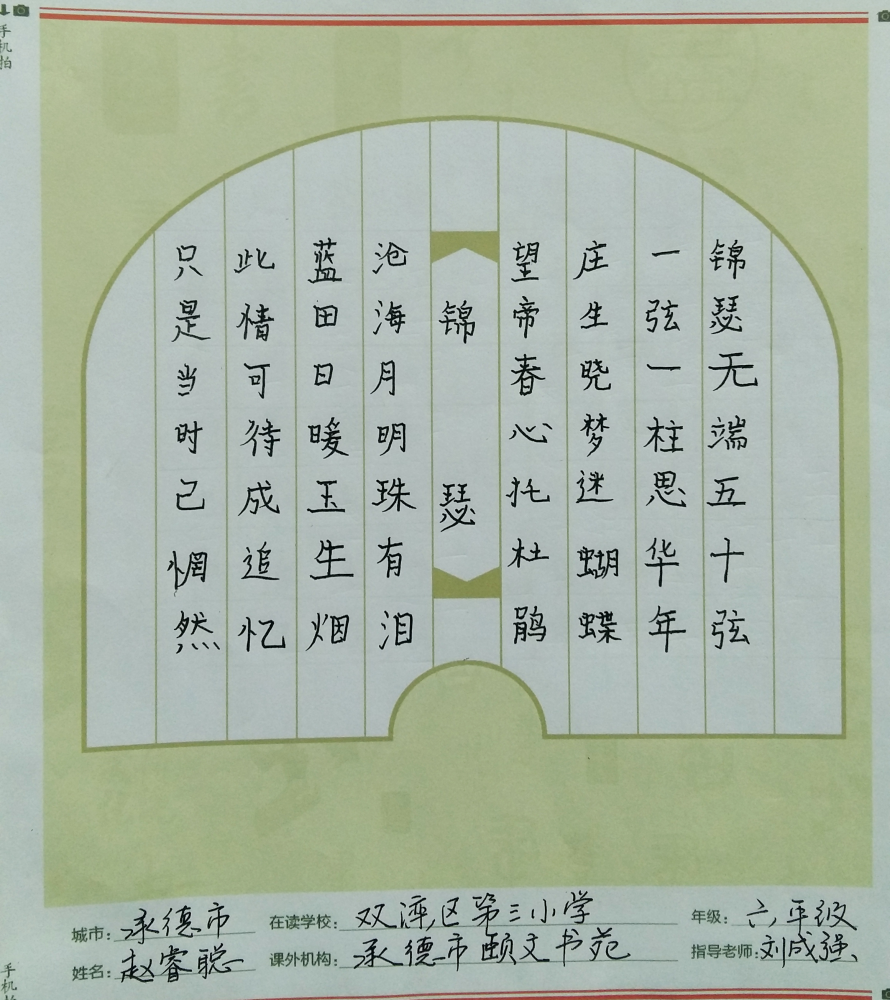 锦瑟无端五十弦
一弦一柱思华年
庄生晓梦迷蝴蝶
望帝春心托杜鹃
锦瑟
沧海月明珠有泪
蓝田日暖玉生烟
此情可待成追忆
只是当时已惘然
城市：承德市 在读学校：双滦区第三小学 年级：六年级
姓名：赵睿聪 课外机构：承德市颐文书苑 指导老师：刘成强
手机拍
手机